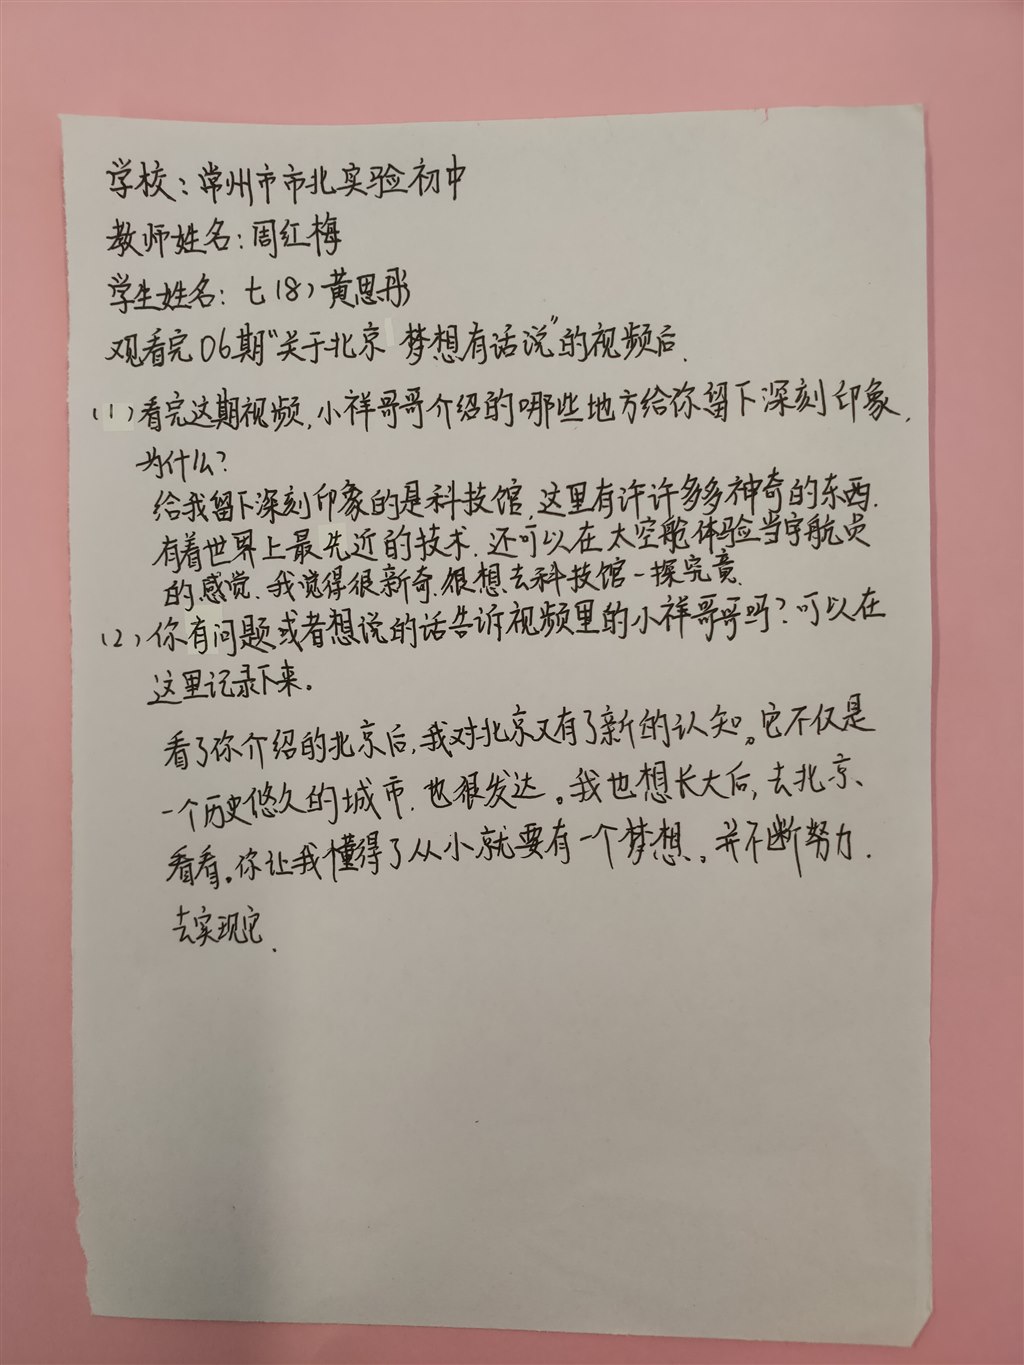 学校：常州市市北实验初中
教师姓名：周红梅
学生姓名：七（8）黄思彤
观看完06期“关于北京 梦想有话说”的视频后.
（1）看完这期视频,小祥哥哥介绍的哪些地方给你留下深刻印象,
为什么?
给我留下深刻印象的是科技馆,这里有许许多多神奇的东西.
有着世界上最先近的技术.还可以在太空舱体验当宇航员
的感觉.我觉得很新奇.很想去科技馆一探究竟.
（2）你有问题或者想说的话告诉视频里的小祥哥哥吗?可以在
这里记录下来。
看了你介绍的北京后,我对北京又有了新的认知。它不仅是
一个历史悠久的城市.也很发达。我也想长大后,去北京、
看看。你让我懂得了从小就要有一个梦想。并不断努力.
去实现它.